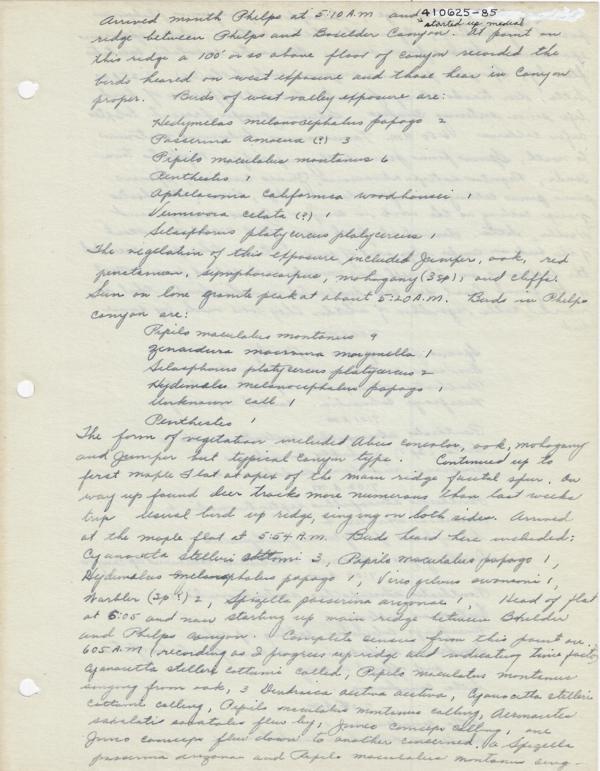 Arrived mouth Phelps at 5:10 A.M. and started up medial
410625-85
ridge between Phelps and Boulder Canyon. At point on
this ridge a 100' or so above floor of canyon recorded the
birds heared on west exposure and those hear in Canyon
proper. Birds of west valley exposure are:
Hedymelas melanocephalus papago 2
Passerina amoena (?) 3
Pipilo maculatus montanus 6
Penthestes 1
Aphelocoma californica woodhousei 1
Vermivora celata (?) 1
Selasphorus platycercus platycercus 1
The vegetation of this exposure included Juniper, oak, red
penstemon, symphorocarpus, mohogany (3 sp), and cliffs.
Sun on lone granite peak at about 5:20 A.M. Birds in Phelps
Canyon are:
Pipilo maculatus montanus 9
Zenaidura macroura marginella 1
Selasphorus platycercus platycercus 2
Hydemelas melanocephalus papago 1
Unknown call 1
Penthestes 1
The form of vegetation included Abies concolor, oak, mohogany
and Juniper but typical canyon type. Continued up to
first maple flat at apex of the main ridge facetal spur. On
way up found deer tracks more numerous than last weeks
trip. Usual bird up ridge, singing on both sides. Arrived
at the maple flat at 5:54 A.M. Birds heard here included:
Cyanocitta stelleri cottomi 3, Papilo maculatus papago 1,
Hydemalus melanocephalus papago 1, Vireo gilvus swansoni 1,
Warbler (sp?) 2, Spizella passerina arizonae 1, Head of flat
at 6:05 and now starting up main ridge between Boulder
and Phelps Canyon. Complete census from this point are.
605 A.M. (recording as I progress up ridge and indicating time factor)
Cyanocitta stelleri cottomi called, Pipilo maculatus montanus
singing from oak, 3 Dendroica aestiva aestiva, Cyanocitta stelleri
cottomi calling, Pipilo maculatus montanus calling, Aeronautes
saxalatis saxatalis flew by, Junco caniceps calling, one
Junco caniceps flew down to another concerned. A Spizella
passerina arizonae and Papilo maculatus montanus sing-